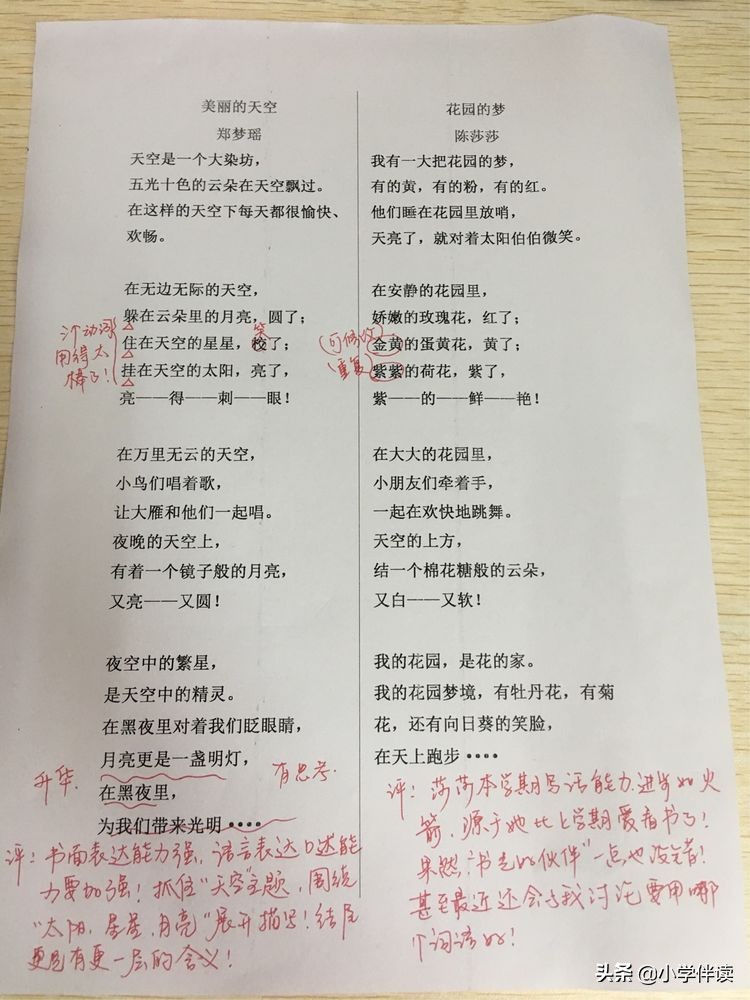 美丽的天空
郑梦瑶
天空是一个大染坊，
五光十色的云朵在天空飘过。
在这样的天空下每天都很愉快、
欢畅。
在无边无际的天空，
躲在云朵里的月亮，圆了；
笑
住在天空的星星，校了；
挂在天空的太阳，亮了，
亮——得——刺——眼！
3个动词
用得太
棒了！
在万里无云的天空，
小鸟们唱着歌，
让大雁和他们一起唱。
夜晚的天空上，
有着一个镜子般的月亮，
又亮——又圆！
夜空中的繁星，
是天空中的精灵。
在黑夜里对着我们眨眼睛，
月亮更是一盏明灯，
在黑夜里，
为我们带来光明····
升华.
有思考.
评：书面表达能力强，语言表达口述能
力要加强！抓住“天空”主题，围绕
“太阳，星星，月亮”展开描写！结尾
更是有更一层的含义！
花园的梦
陈莎莎
我有一大把花园的梦，
有的黄，有的粉，有的红。
他们睡在花园里放哨，
天亮了，就对着太阳伯伯微笑。
在安静的花园里，
娇嫩的玫瑰花，红了；
金黄的蛋黄花，黄了；
紫紫的荷花，紫了，
紫——的——鲜——艳！
（可修改）
（重复）
在大大的花园里，
小朋友们牵着手，
一起在欢快地跳舞。
天空的上方，
结一个棉花糖般的云朵，
又白——又软！
我的花园，是花的家。
我的花园梦境，有牡丹花，有菊
花，还有向日葵的笑脸，
在天上跑步····
评：莎莎本学期写话能力进步如火
箭，源于她比上学期爱看书了！
果然“书是好伙伴”一点也没错！
甚至最近还会与我讨论要用哪
个词语好！
头条 @小学伴读